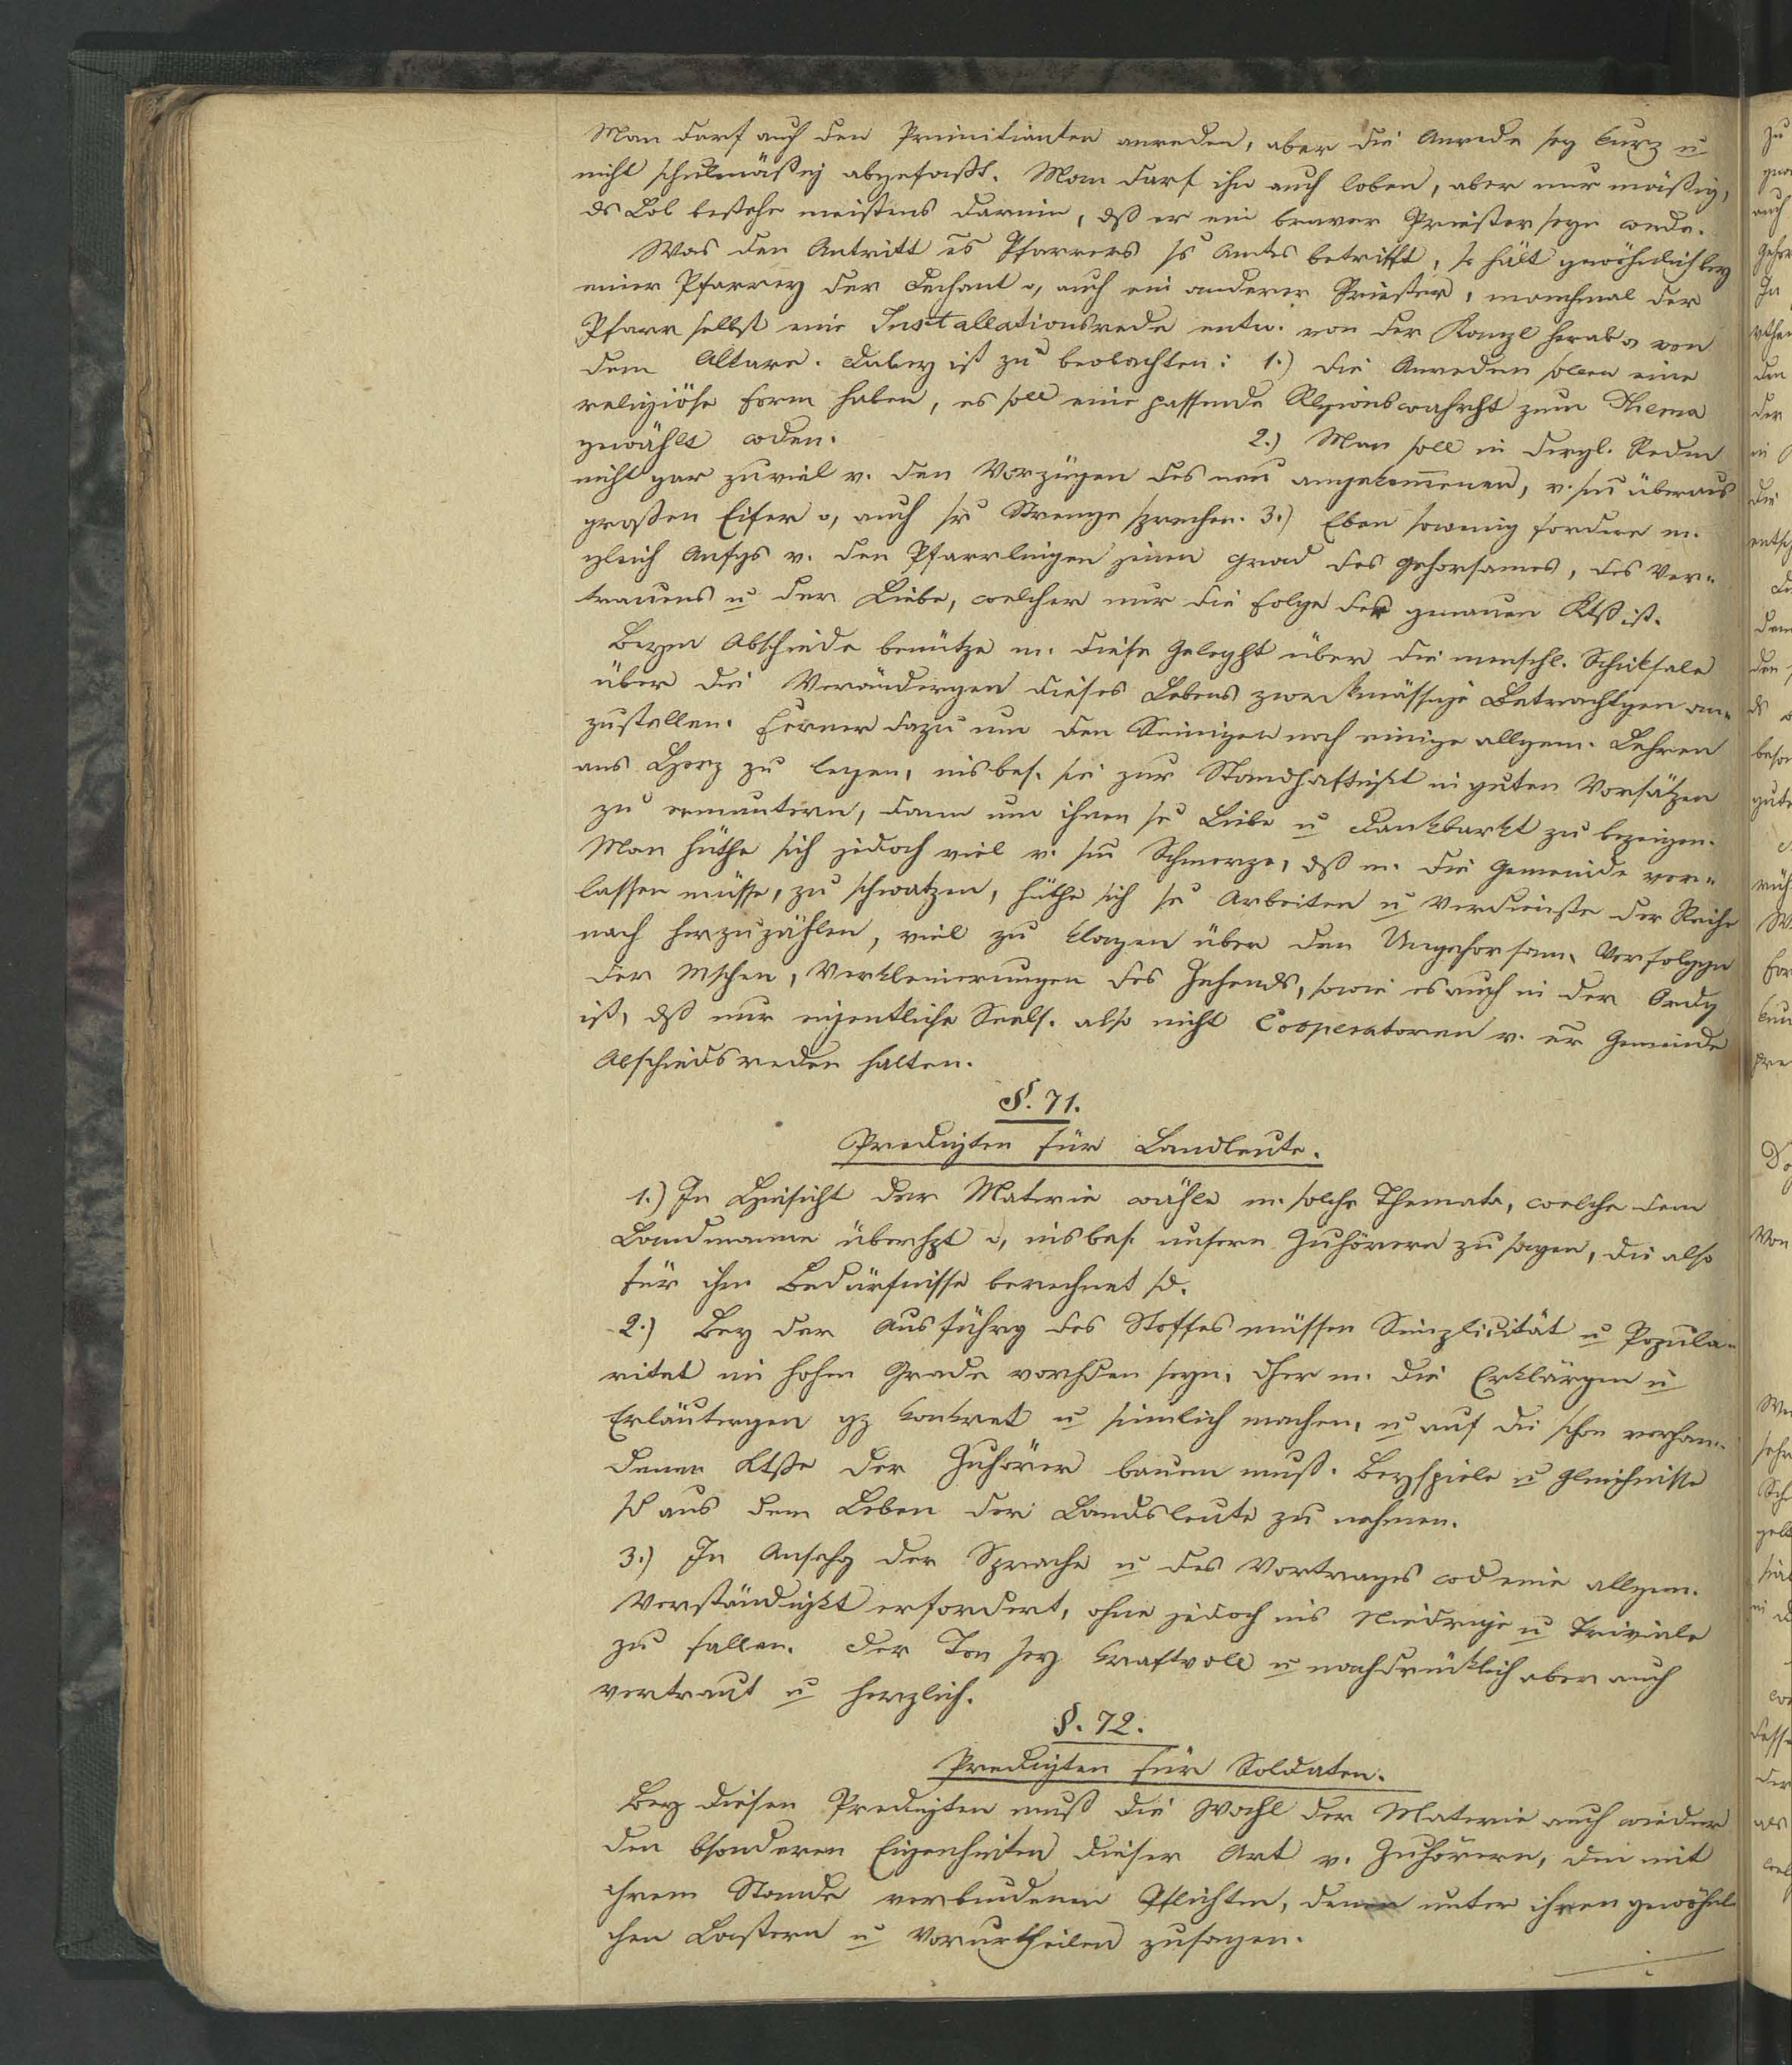 Man darf auch den Primitianten anreden, aber die Anrede sey kurz u
nicht schulmäßig abgefaßt. Man darf ihn auch loben, aber nur mäßig,
ds Lob bestehe meistens darin, dß er ein braver Priester seyn werde.
Was den Antritt es Pfarrers ss Amtes betrifft, so hält gewöhnlich bey
einer Pfarrey der Dechant o, auch ein anderer Priester, manchmal der
Pfarr selbst eine Installationsrede entw. von der Kanzl herab o, von
dem Altare. Dabey ist zu beobachten: 1.) Die Anreden sollen eine
religiöse Form haben, es soll eine passende Rlgionswahrht zum Thema
gewählt wden. 2.) Man soll in dergl. Reden
nicht gar zuviel v. den Vorzügen des neu angekommenen, v. sm überaus
großen Eifer o, auch sr Strenge sprechen. 3.) Eben sowenig fordere m.
gleich Anfgs v. den Pfarrlingen jenen Grad des Gehorsames, des Ver-
trauens u der Liebe, welcher nur die Folge der genauen Ktß ist.
Beym Abschiede benütze m. diese Geleght über die menschl. Schicksale
über die Verändergen dieses Lebens zweckmässige Betrachtgen an-
zustellen. Ferner dazu um den Seinigen noch einige allgem. Lehren
ans Herz zu legen, insbes. sie zur Standhaftigkt in guten Vorsätzen
zu ermuntern, dann um ihnen se Liebe u Dankbarkt zu bezeigen.
Man hüthe sich jedoch viel v. sm Schmerze, dß m. die Gemeinde ver-
lassen müsse, zu schwatzen, hüthe sich se Arbeiten u Verdienste der Reihe
nach herzuzählen, viel zu klagen über den Ungehorsam, Verfolggn
der Mschen, Verkleinerungen des Zehends, sowie es auch in der Ordg
ist, dß nur eigentliche Seels. also nicht Cooperatoren v. er Gemeinde
Abschiedsreden halten.
§. 71.
Predigten für Landleute.
1.) In Hinsicht der Materie wähle m. solche Themata, welche dem
Landmanne überhpt o, insbes. unsern Zuhörern zu sagen, die also
für ihre Bedürfnisse berechnet sd.
2.) Bey der Ausführg des Stoffes müssen Simplicität u Popula-
ritat im hohen Grade vorhden seyn, dher m. die Erklärgen u
Erläutergen gz konkret u sinnlich machen, u auf die schon vorhan-
denen Ktße der Zuhörer bauen muß. Beyspiele u Gleichnisse
sd aus dem Leben der Landsleute zu nehmen.
3.) In Ansehg der Sprache u des Vortrages wd eine allgem.
Verständigkt erfordert, ohne jedoch ins Niedrige u Triviale
zu fallen. Der Ton sey kraftvoll u nachdrücklich aber auch
vertraut u herzlich.
§. 72.
Predigten für Soldaten.
Bey diesen Predigten muß die Wahl der Materie auch wieder
den bsonderen Eigenheiten dieser Art v. Zuhörern, den mit
ihrem Stande verbundenen Pflichten, den unter ihnen gewöhnl-
chen Lastern u Vorurtheilen zusagen.